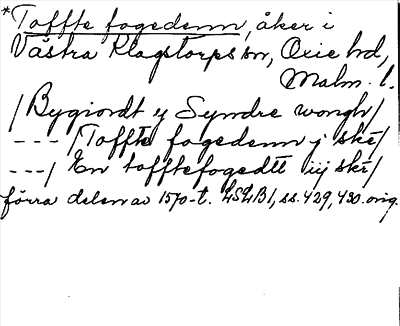 *Toffte fogedenn, åker i
Västra Klagstorps sn, Oxie hd,
Malm. l.
/Bygiordt y Syndre wongh/
---/Toffte fogedenn j ske/
---/ En tofftefogedtt iij ske/
förra delen av 1570-t. LSLB1, ss. 429, 430. orig.